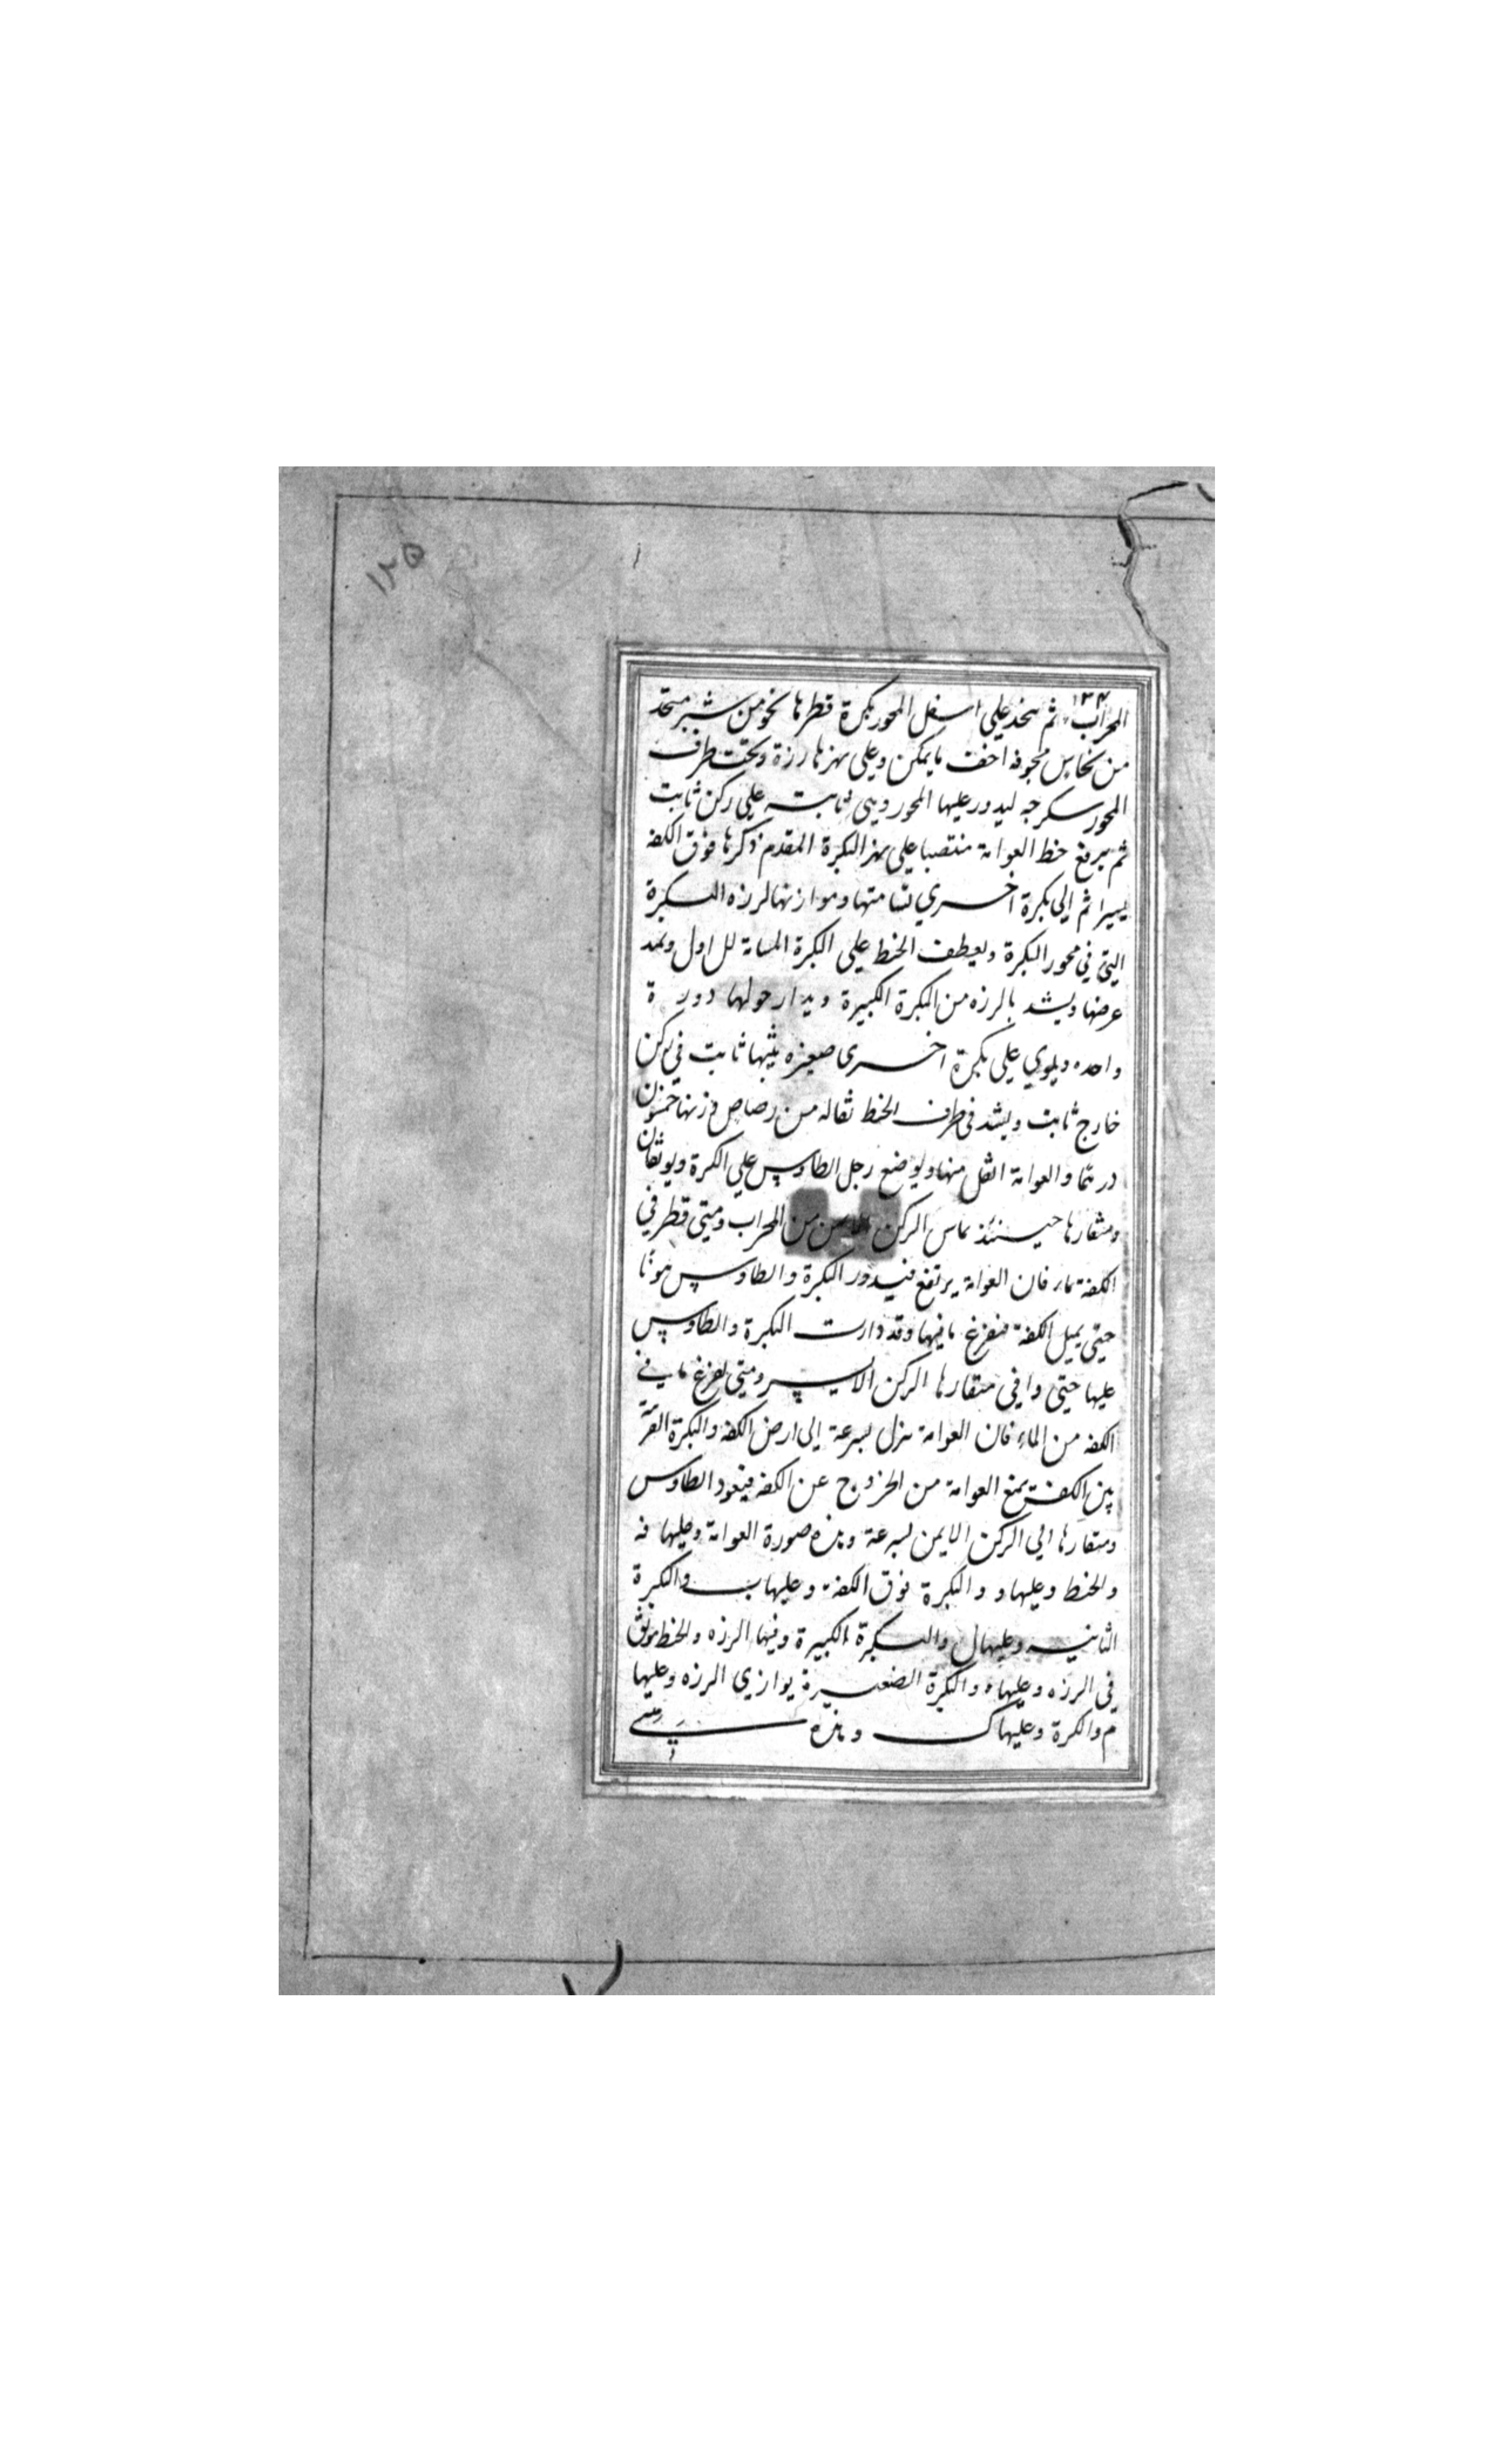 ١٢٥
١٢٤
المحراب ثم يتخذ على اسفل المحور بكرة قطرها نحو من شبر متخذ
من نحاس مجوفه اخف ما يمكن وعلى نهرها رزة وتحت طرف
المحور سكرجه ليدور عليها المحور وهي ثابته على ركن ثابت
ثم يرفع خيط العوامة منتصبا على نهر البكرة المقدم ذكرها فوق الكفه
يسيرا ثم الى بكرة اخرى تسامتها وموازنها لرزه البكرة
التي في محور البكرة ويعطف الخيط على البكرة المسامتة للاول وتمد
عرضها ويشد بالرزه من البكرة الكبيرة ويدار حولها دورة
واحده ويلوي على بكرة اخرى صغيره بيتها ثابت في ركن
خارج ثابت ويشد في طرف الخيط ثقاله من رصاص وزنها خمسون
درهما والعوامة اثقل منها ويوضع رجل الطاوس على الكرة ويوثقان
ومنقارها حينئذ يماس الركن الايمن من المحراب ومتى قطر في
الكفة ماء فان العوامة يرتفع فيدور البكرة والطاوس هونا
حتى يميل الكفة فيفرغ ما فيها وقد دارت البكرة والطاوس
عليها حتى وافى منقارها الركن الايسر ومتى يفرغ ما في
الكفه من الماء فان العوامة ينزل بسرعة الى ارض الكفه والبكرة القريبة
بين الكفة يمنع العوامة من الخروج عن الكفه فيعود الطاوس
ومنقارها الى الركن الايمن بسرعة وهذه صورة العوامة وعليها فه
والخيط وعليها د والبكرة فوق الكفة وعليها ب والبكرة
الثانيه وعليها ل والبكرة الكبيرة وفيها الرزه والخيط موثق
في الرزه وعليها ه والبكرة الصغيرة يوازي الرزه وعليها
م والكرة وعليها ك وهذه